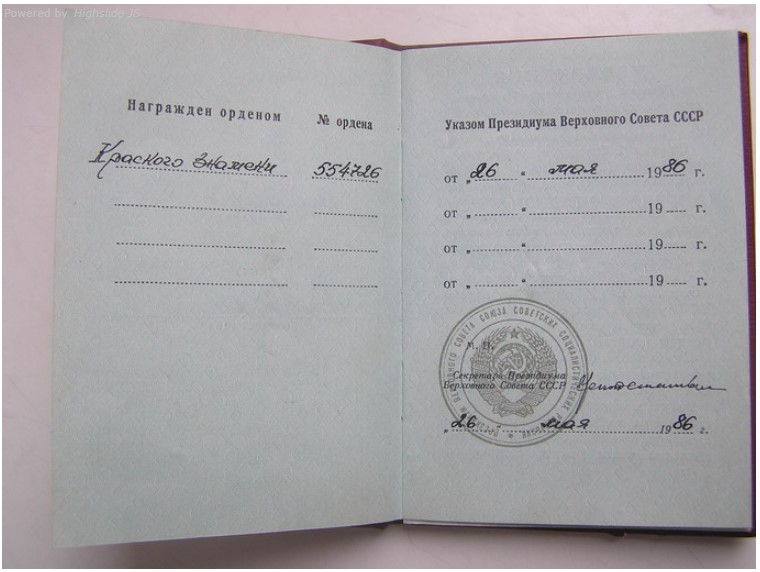 Powered by Highslide JS
Награжден орденом № ордена
Красного Знамени 554726
Указом Президиума Верховного Совета СССР
от „26“ мая 1986 г.
от „ “ 19 г.
от „ “ 19 г.
от „ “ 19 г.
М. П.
Секретарь Президиума
Верховного Совета СССР
„26“ мая 1986 г.